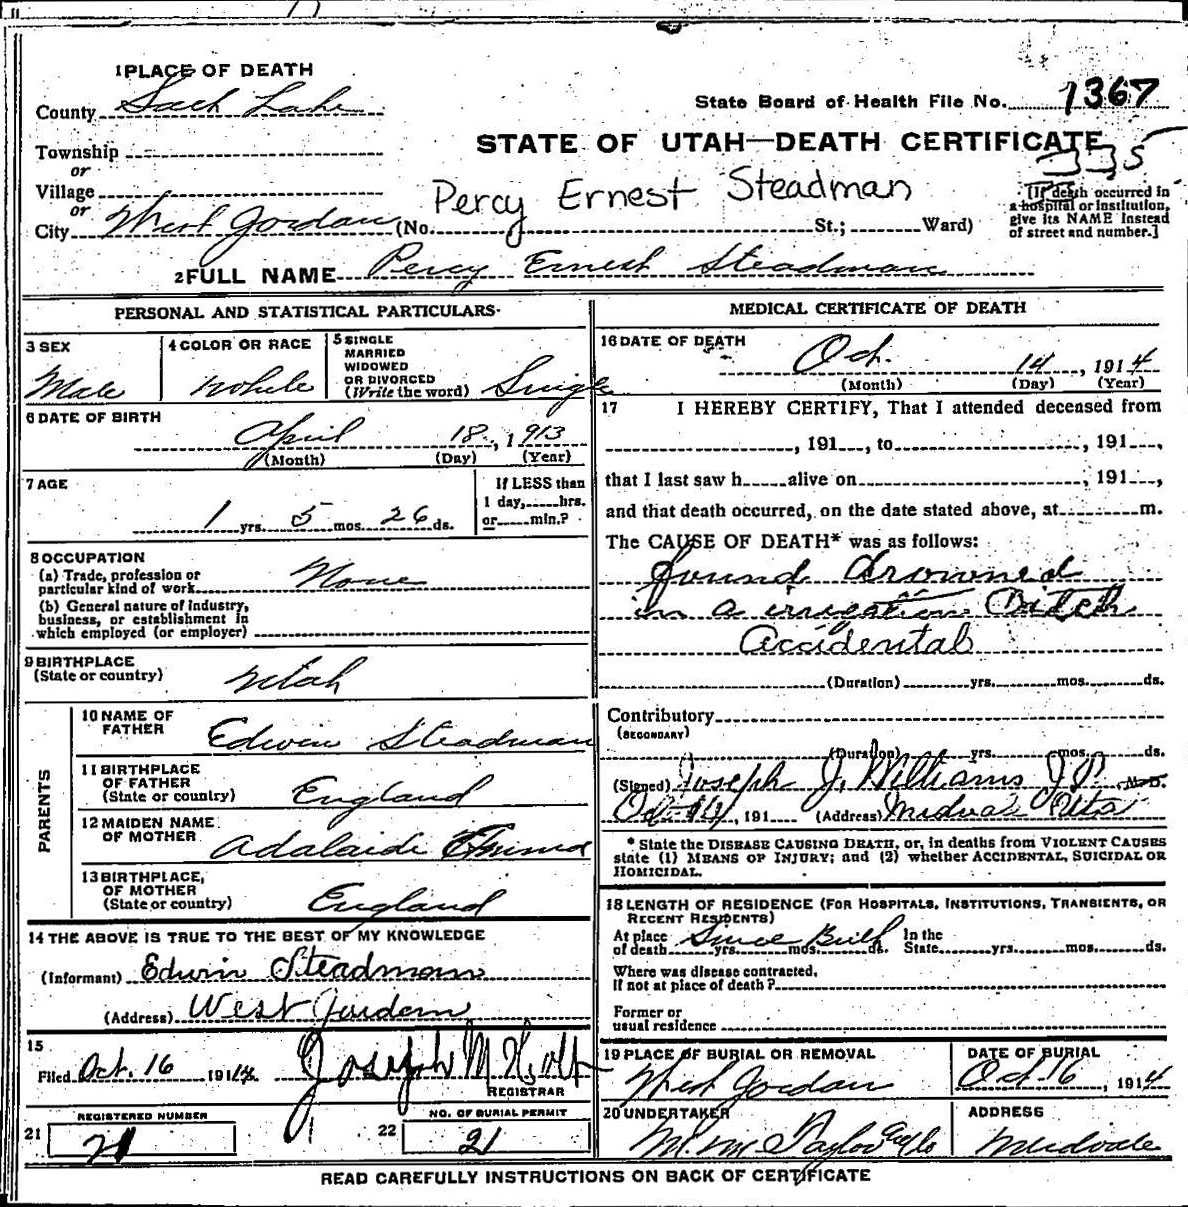 1 PLACE OF DEATH
County Salt Lake
State Board of Health File No. 1367
STATE OF UTAH—DEATH CERTIFICATE
335
Township
or
Village
or
City West Jordan (No. St.; Ward)
Percy Ernest Steadman
[If death occurred in
a hospital or institution,
give its NAME instead
of street and number.]
2 FULL NAME Percy Ernest Steadman
PERSONAL AND STATISTICAL PARTICULARS
3 SEX
Male
4 COLOR OR RACE
White
5 SINGLE
MARRIED
WIDOWED
OR DIVORCED
(Write the word) Single
6 DATE OF BIRTH
April 18, 1913
(Month) (Day) (Year)
7 AGE
1 yrs. 5 mos. 26 ds.
If LESS than
1 day, hrs.
or min.?
8 OCCUPATION
(a) Trade, profession or
particular kind of work None
(b) General nature of industry,
business, or establishment in
which employed (or employer)
9 BIRTHPLACE
(State or country) Utah
PARENTS
10 NAME OF
FATHER Edwin Steadman
11 BIRTHPLACE
OF FATHER
(State or country) England
12 MAIDEN NAME
OF MOTHER Adalaide
13 BIRTHPLACE,
OF MOTHER
(State or country) England
14 THE ABOVE IS TRUE TO THE BEST OF MY KNOWLEDGE
(Informant) Edwin Steadman
(Address) West Jordern
15
Filed Oct. 16 1914 Joseph M. Holt
REGISTRAR
REGISTERED NUMBER
21 21
NO. OF BURIAL PERMIT
22 21
MEDICAL CERTIFICATE OF DEATH
16 DATE OF DEATH
Oct. 14, 1914
(Month) (Day) (Year)
17 I HEREBY CERTIFY, That I attended deceased from
, 191 , to , 191 ,
that I last saw h alive on , 191 ,
and that death occurred, on the date stated above, at m.
The CAUSE OF DEATH* was as follows:
found drowned
in a irrigation Ditch
Accidental
(Duration) yrs. mos. ds.
Contributory
(SECONDARY)
(Duration) yrs. mos. ds.
(Signed) Joseph J. Williams J.P. M.D.
Oct 14, 191 (Address) Midvale Utah
* State the DISEASE CAUSING DEATH, or, in deaths from VIOLENT CAUSES
state (1) MEANS OF INJURY; and (2) whether ACCIDENTAL, SUICIDAL OR
HOMICIDAL.
18 LENGTH OF RESIDENCE (FOR HOSPITALS, INSTITUTIONS, TRANSIENTS, OR
RECENT RESIDENTS)
At place
of death Since Birth yrs. mos. ds. In the
State yrs. mos. ds.
Where was disease contracted,
if not at place of death?
Former or
usual residence
19 PLACE OF BURIAL OR REMOVAL
West Jordan
DATE OF BURIAL
Oct 16, 1914
20 UNDERTAKER
M. M. Taylor
ADDRESS
Midvale
READ CAREFULLY INSTRUCTIONS ON BACK OF CERTIFICATE